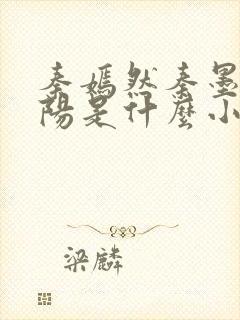 秦嫣然秦墨
陽是什麼小
梁麟